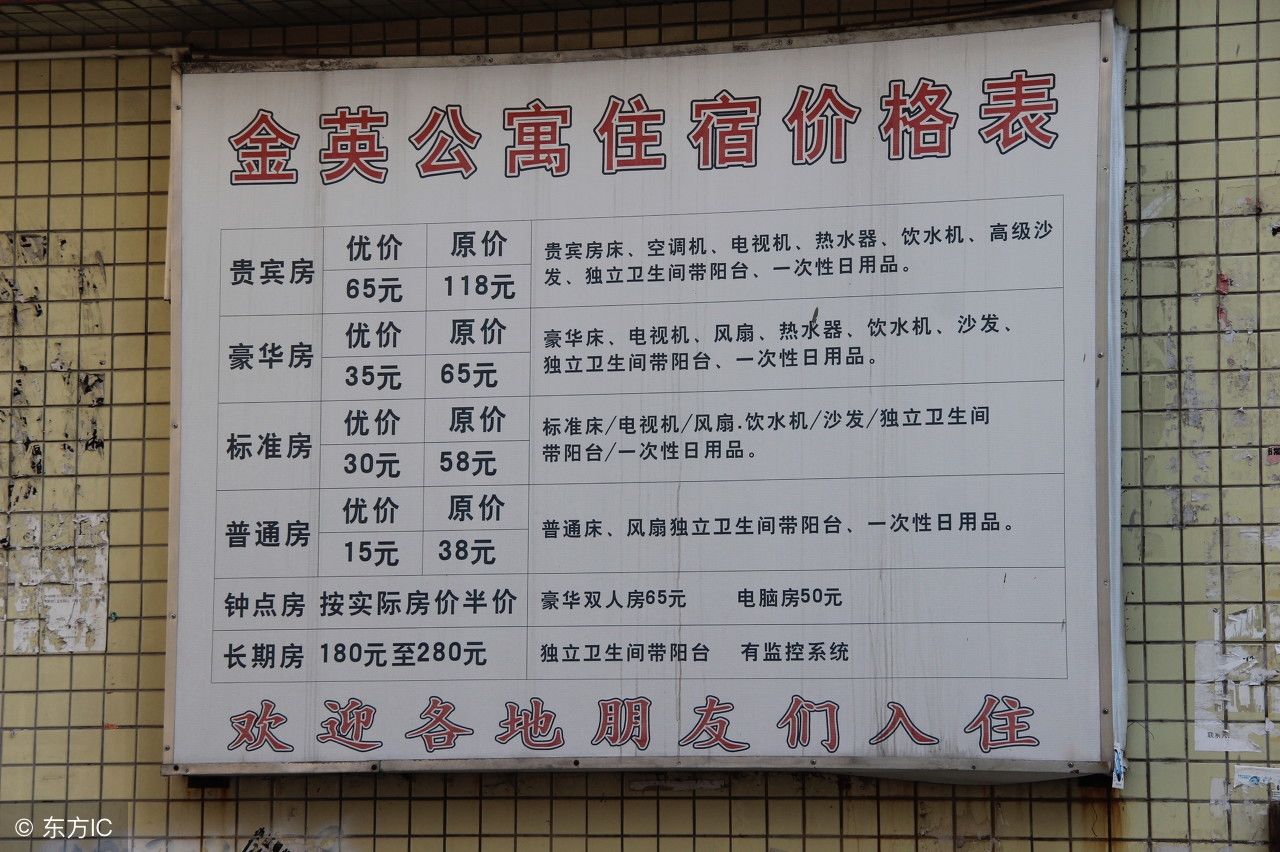 金英公寓住宿价格表
贵宾房 优价 原价 贵宾房床、空调机、电视机、热水器、饮水机、高级沙
65元 118元 发、独立卫生间带阳台、一次性日用品。
豪华房 优价 原价 豪华床、电视机、风扇、热水器、饮水机、沙发、
35元 65元 独立卫生间带阳台、一次性日用品。
标准房 优价 原价 标准床/电视机/风扇.饮水机/沙发/独立卫生间
30元 58元 带阳台/一次性日用品。
普通房 优价 原价 普通床、风扇独立卫生间带阳台、一次性日用品。
15元 38元
钟点房 按实际房价半价 豪华双人房65元 电脑房50元
长期房 180元至280元 独立卫生间带阳台 有监控系统
欢迎各地朋友们入住
© 东方IC